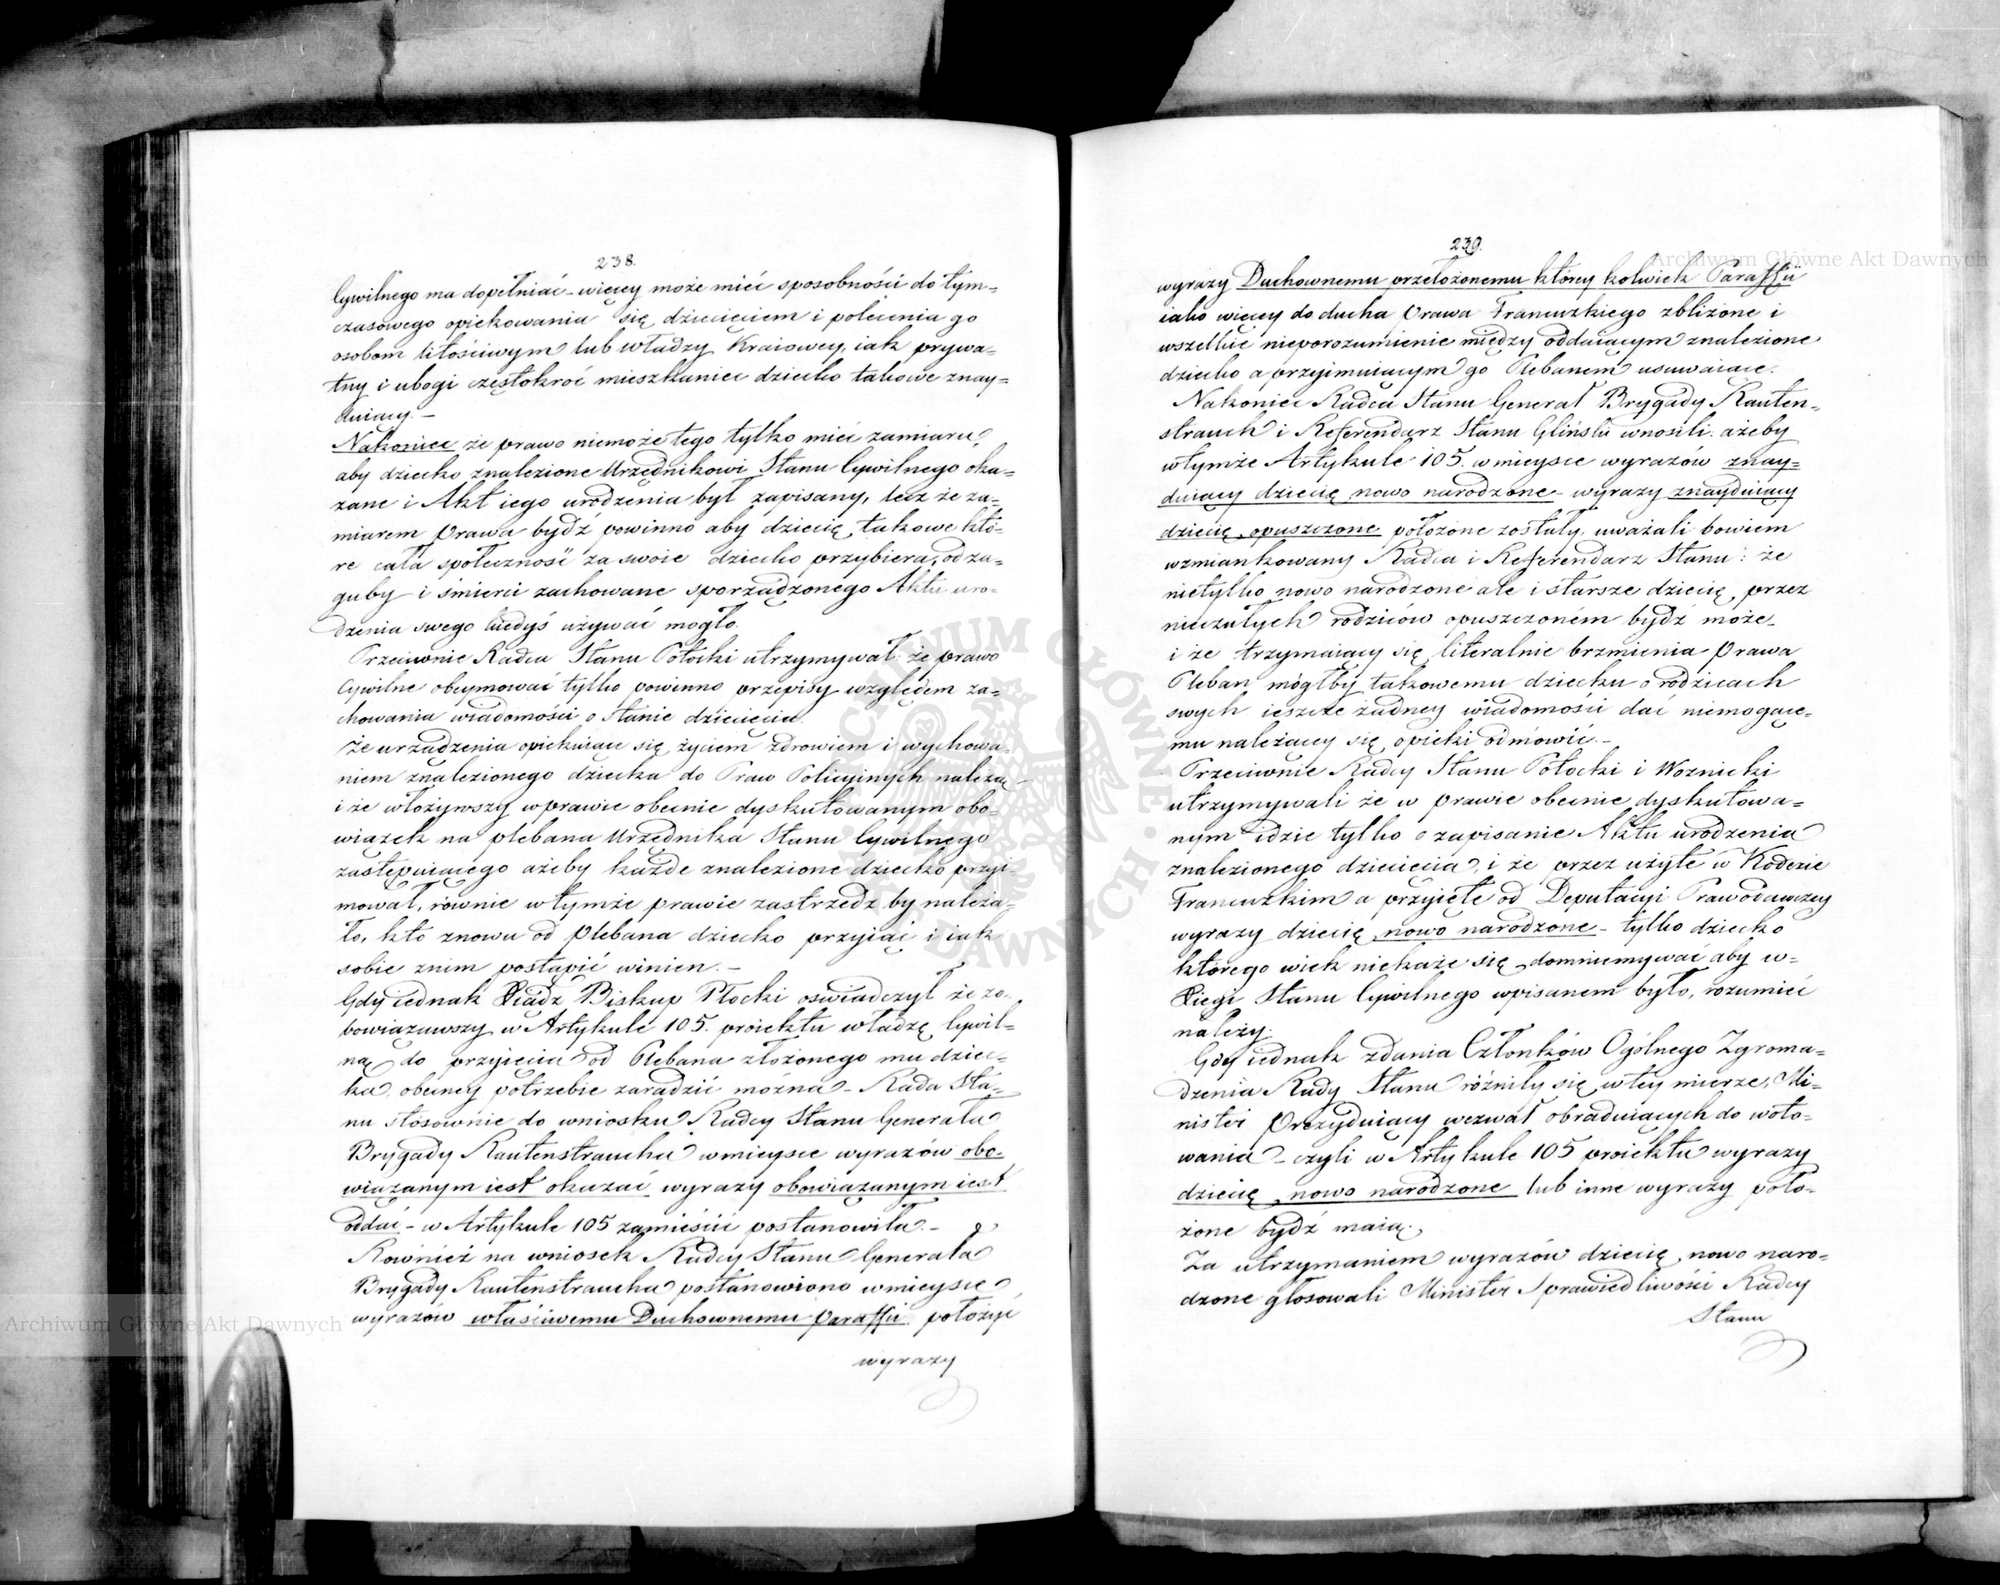 238.
Cywilnego ma dopełniać – więcey może mieć sposobności do tym=
czasowego opiekowania się dziecięciem i polecenia go
osobom litościwym lub władzy Kraiowey, iak prywa=
tny i ubogi częstokroć mieszkaniec dziecko takowe znay=
duiący. –
Nakoniec że prawo niemoże tego tylko mieć zamiaru,
aby dziecko znalezione Urzędnikowi Stanu Cywilnego oka=
zane i Akt iego urodzenia był zapisany, lecz że za=
miarem Prawa bydź powinno aby dziecię takowe któ=
re cała społeczność za swoie dziecko przybiera, od za=
guby i śmierci zachowane sporządzonego Aktu uro=
dzenia swego kiedyś używać mogło.
Przeciwnie Radca Stanu Potocki utrzymywał: że prawo
Cywilne obeymować tylko powinno przepisy względem za=
chowania wiadomości o Stanie dziecięcia.
Że urządzenia opiekuiące się życiem zdrowiem i wychowa=
niem znalezionego dziecka do Praw Policyinych należą –
i że włożywszy w prawie obecnie dyskutowanym obo=
wiązek na plebana Urzędnika Stanu Cywilnego
zastępuiącego ażeby każde znalezione dziecko przyi=
mował, równie w tymże prawie zastrzedz by należa=
ło, kto znowu od Plebana dziecko przyiąć i iak
sobie znim postąpić winien. –
Gdy iednak Xiądz Biskup Płocki oświadczył że zo=
bowiązawszy w Artykule 105. proiektu władzę Cywil=
ną do przyięcia od Plebana złożonego mu dziec=
ka, obecney potrzebie zaradzić można – Rada Sta=
nu stosownie do wniosku Radcy Stanu Generała
Brygady Rautenstraucha w mieysce wyrazów obo=
wiązanym iest okazać wyrazy obowiązanym iest
oddać – w Artykule 105 zamieścić postanowiła. –
Również na wniosek Radcy Stanu Generała
Brygady Rautenstraucha postanowiono w mieysce
wyrazów właściwemu Duchownemu Paraffii położyć
wyrazy
239.
wyrazy Duchownemu przełożonemu którey kolwiek Paraffii
iako więcey do ducha Prawa Francuzkiego zbliżone i
wszelkie nieporozumienie między oddaiącym znalezione
dziecko a przyimuiącym go Plebanem usuwaiące.
Nakoniec Radca Stanu Generał Brygady Rauten=
strauch i Referendarz Stanu Gliński wnosili: ażeby
w tymże Artykule 105. w mieysce wyrazów znay=
duiący dziecię nowo narodzone – wyrazy znayduiący
dziecię opuszczone położone zostały, uważali bowiem
wzmiankowany Radca i Referendarz Stanu: że
nietylko nowo narodzone ale i starsze dziecię, przez
nieczułych rodziców opuszczoném bydź może –
i że trzymaiący się literalnie brzmienia Prawa
Pleban mógłby takowemu dziecku o rodzicach
swych ieszcze żadney wiadomości dać niemogące=
mu należącey się opieki odmówić. –
Przeciwnie Radcy Stanu Potocki i Woznicki
utrzymywali że w prawie obecnie dyskutowa=
nym idzie tylko o zapisanie Aktu urodzenia
znalezionego dziecięcia, i że przez użyte w Kodexie
Francuzkim a przyięte od Deputacyi Prawodawczey
wyrazy dziecię nowo narodzone – tylko dziecko
którego wiek niekaże się domniemywać aby w=
Xięgi Stanu Cywilnego wpisanem było, rozumieć
należy.
Gdy iednak zdania Członków Ogólnego Zgroma=
dzenia Rady Stanu różniły się w tey mierze, Mi=
nister Prezyduiący wezwał obraduiących do woto=
wania – czyli w Artykule 105 proiektu wyrazy
dziecię nowo narodzone lub inne wyrazy poło=
żone bydź maią.
Za utrzymaniem wyrazów dziecię nowo naro=
dzone głosowali Minister Sprawiedliwości Radcy
Stanu
Archiwum Główne Akt Dawnych
Archiwum Główne Akt Dawnych
ARCHIWUM GŁÓWNE AKT DAWNYCH